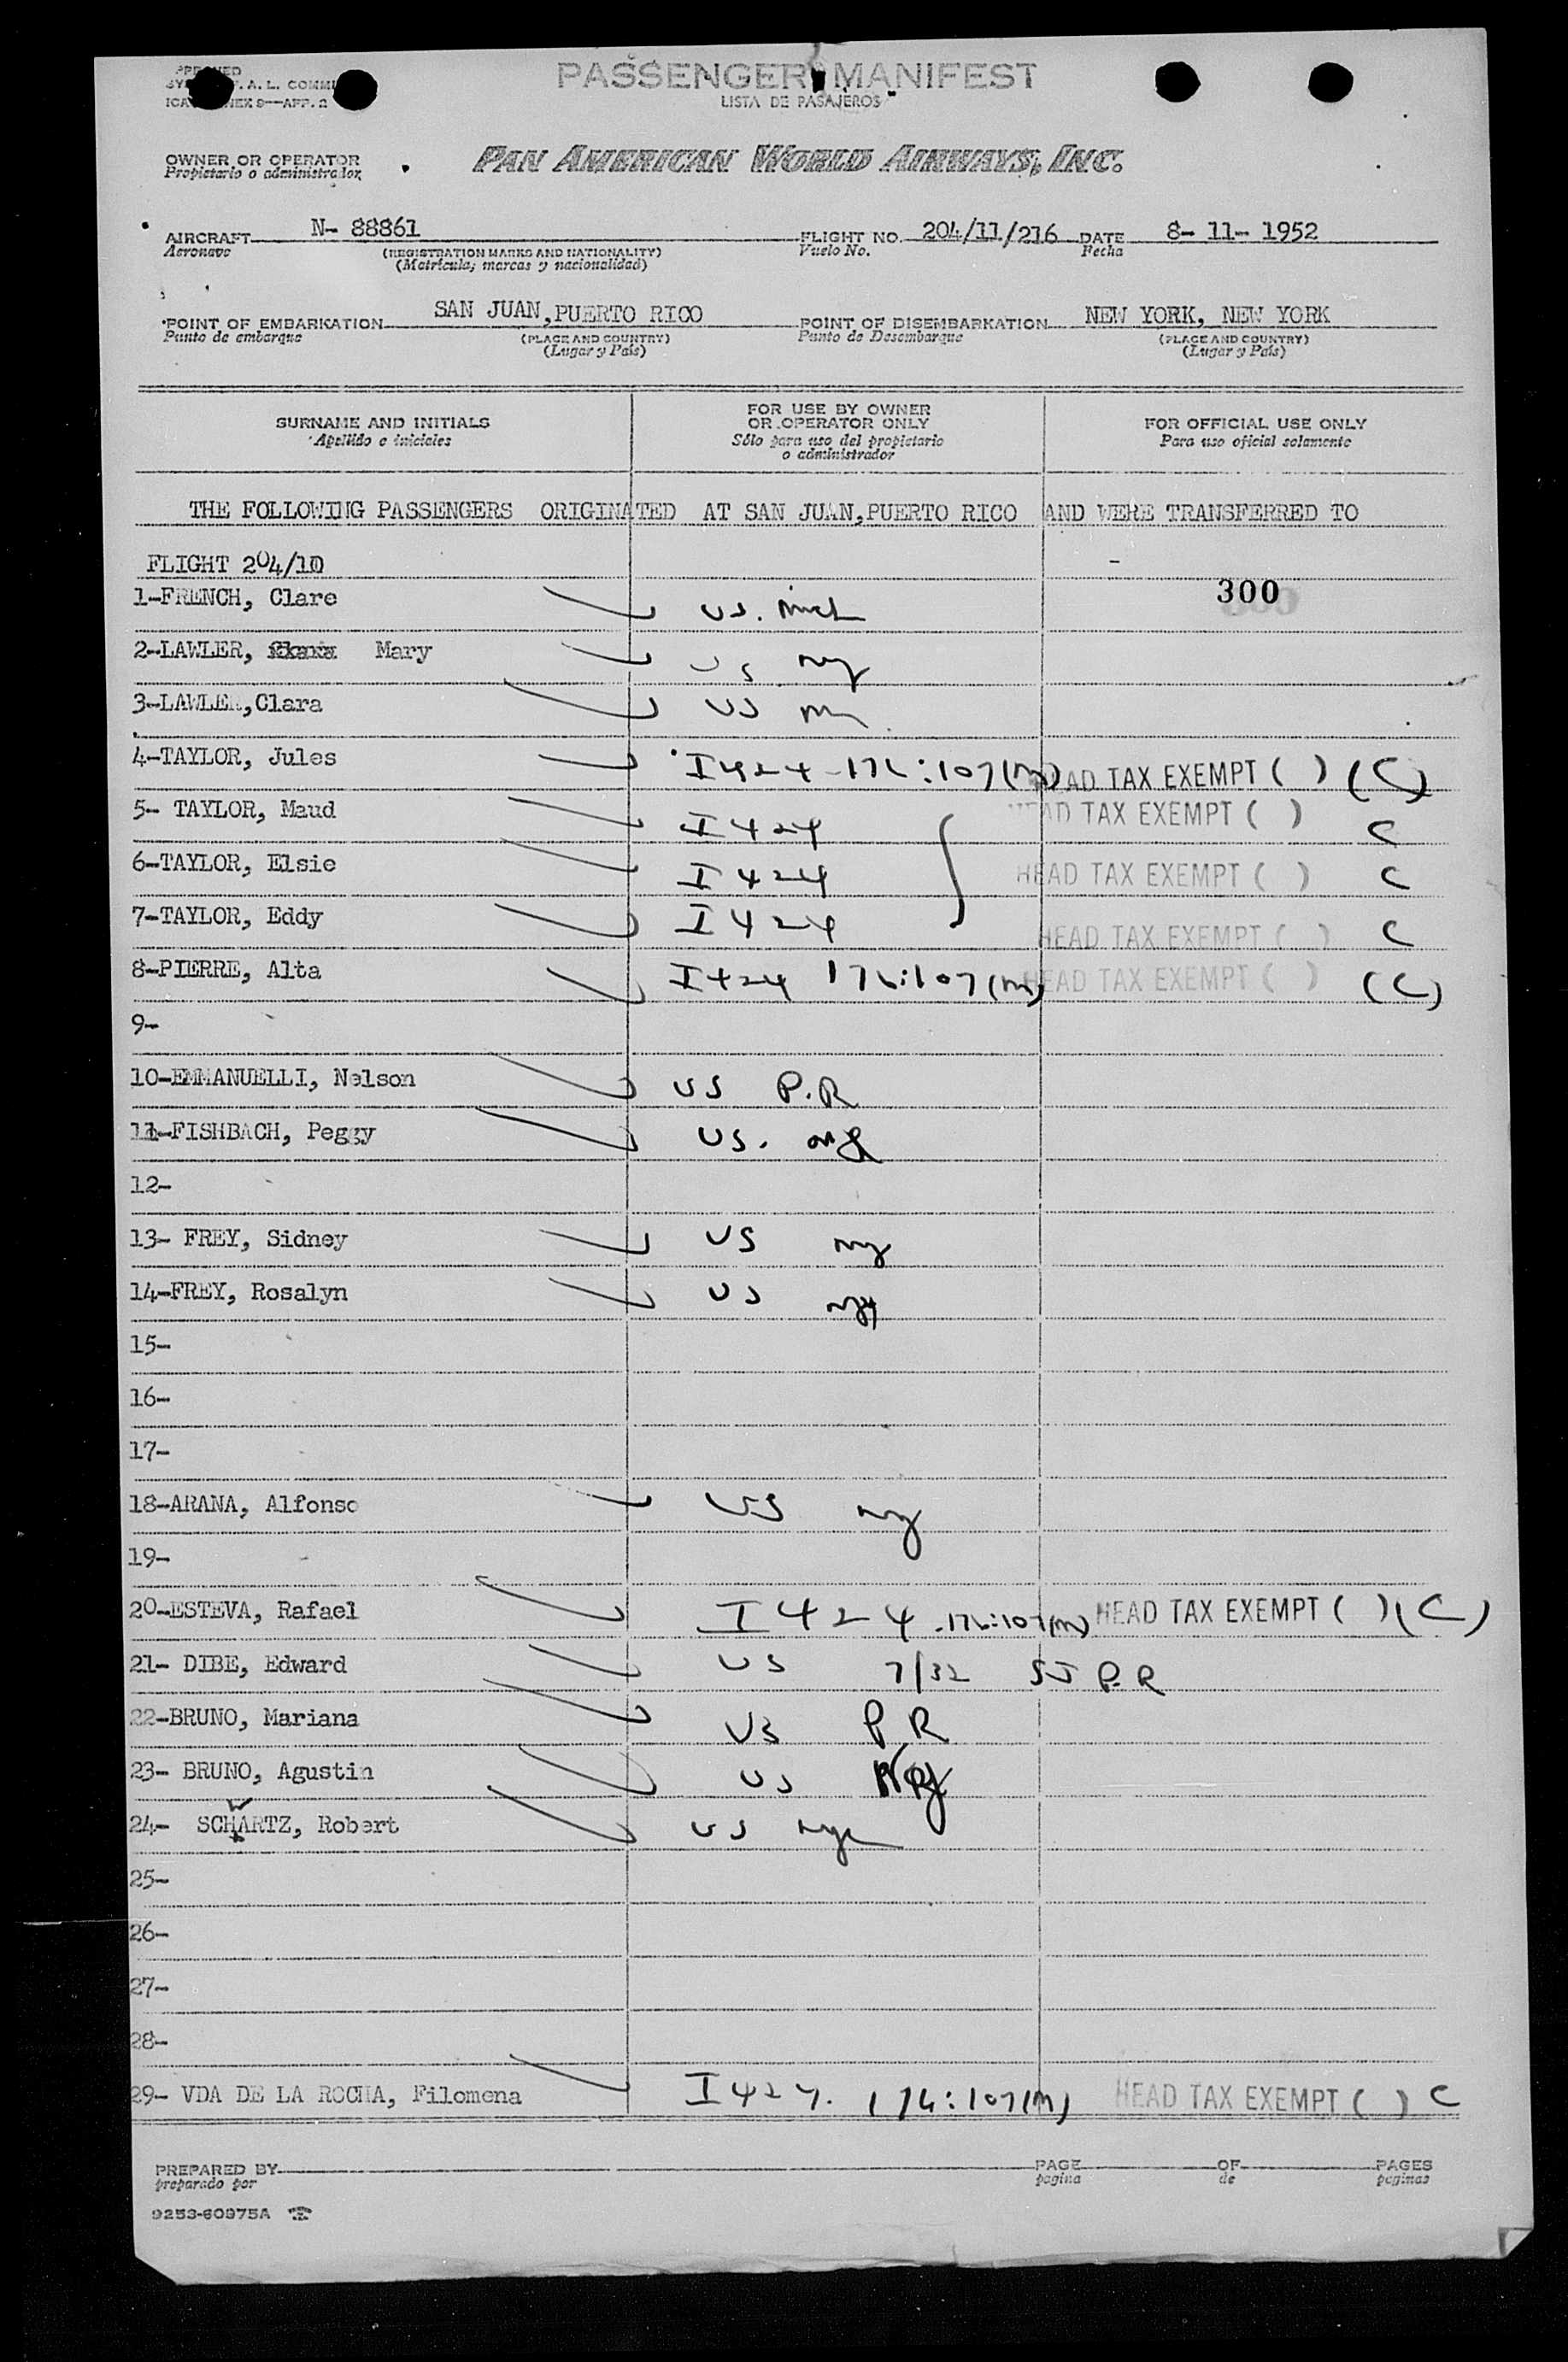 PASSENGER MANIFEST
LISTA DE PASAJEROS
OWNER OR OPERATOR
Propietario o administrador
PAN AMERICAN WORLD AIRWAYS, INC.
AIRCRAFT N- 88861 FLIGHT NO. 204/11/216 DATE 8- 11- 1952
Aeronave (REGISTRATION MARKS AND NATIONALITY) Vuelo No. Fecha
(Matrícula; marcas y nacionalidad)
POINT OF EMBARKATION SAN JUAN, PUERTO RICO POINT OF DISEMBARKATION NEW YORK, NEW YORK
Punto de embarque (PLACE AND COUNTRY) Punto de Desembarque (PLACE AND COUNTRY)
(Lugar y País) (Lugar y País)
SURNAME AND INITIALS FOR USE BY OWNER OR OPERATOR ONLY FOR OFFICIAL USE ONLY
Apellido e iniciales Sólo para uso del propietario o administrador Para uso oficial solamente
THE FOLLOWING PASSENGERS ORIGINATED AT SAN JUAN, PUERTO RICO AND WERE TRANSFERRED TO
FLIGHT 204/10
300
1-FRENCH, Clare US. mich
2-LAWLER, Mary US ny
3-LAWLER, Clara US
4-TAYLOR, Jules I424 -176:107(m) HEAD TAX EXEMPT ( ) (C)
5- TAYLOR, Maud I424 HEAD TAX EXEMPT ( ) C
6-TAYLOR, Elsie I424 HEAD TAX EXEMPT ( ) C
7-TAYLOR, Eddy I424 HEAD TAX EXEMPT ( ) C
8-PIERRE, Alta I424 176:107(m) HEAD TAX EXEMPT ( ) (C)
9-
10-EMMANUELLI, Nelson US P.R
11-FISHBACH, Peggy US.
12-
13- FREY, Sidney US ny
14-FREY, Rosalyn US ny
15-
16-
17-
18-ARANA, Alfonso US ny
19-
20-ESTEVA, Rafael I424 .176:107(m) HEAD TAX EXEMPT ( ) (C)
21- DIBE, Edward US 7/32 SJ P.R
22-BRUNO, Mariana US P.R
23- BRUNO, Agustin US NY
24- SCHWARTZ, Robert US nyc
25-
26-
27-
28-
29- VDA DE LA ROCHA, Filomena I424. 176:107(m) HEAD TAX EXEMPT ( ) C
PREPARED BY PAGE OF PAGES
preparado por pagina de paginas
9253-60975A